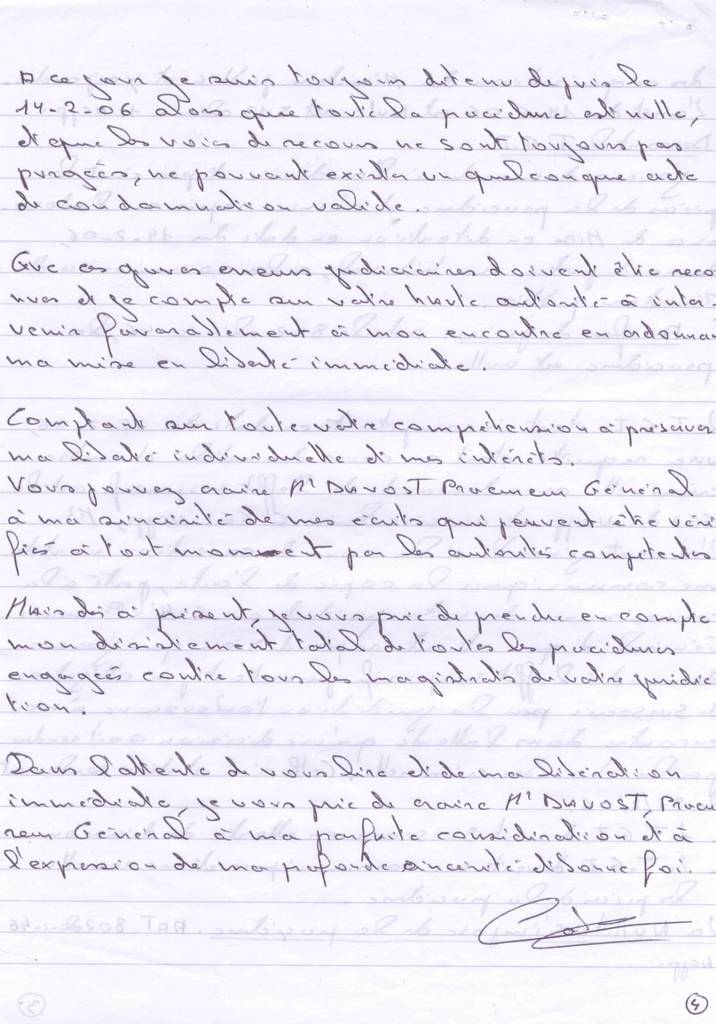 A ce jour je suis toujours détenu depuis le
14-2-06 alors que toute la procédure est nulle,
et que les voies de recours ne sont toujours pas
purgées, ne pouvant exister un quelconque acte
de condamnation valide.
Que ces graves erreurs judiciaires doivent être recon
nues et je compte sur votre haute autorité à inter-
venir favorablement à mon encontre en ordonnant
ma mise en liberté immédiate.
Comptant sur toute votre compréhension à préserver
ma liberté individuelle et mes intérêts.
Vous pouvez croire Mr DAVOST Procureur Général
à ma sincérité de mes écrits qui peuvent être véri
fiés à tout moment par les autorités compétentes
Mais dès à présent, je vous prie de prendre en compte
mon désistement total de toutes les procédures
engagées contre tous les magistrats de votre juridic
tion.
Dans l'attente de vous lire et de ma libération
immédiate, je vous prie de croire Mr DAVOST, Procu
reur Général à ma parfaite considération et à
l'expression de ma profonde sincérité et bonne foi.
4